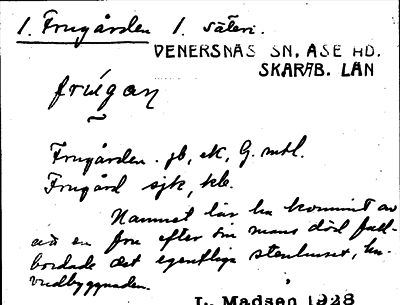 1. Frugården 1. säteri.
VENERSNÄS SN, ÅSE HD.
SKARAB. LÄN
frúgan
Frugården. jb, ek, G. mtl.
Frugård sjk, kb.
Namnet lär ha kommit av
att en fru efter sin mans död full-
bordade det egentliga stenhuset, hu-
vudbyggnaden.
L. Madsen 1928